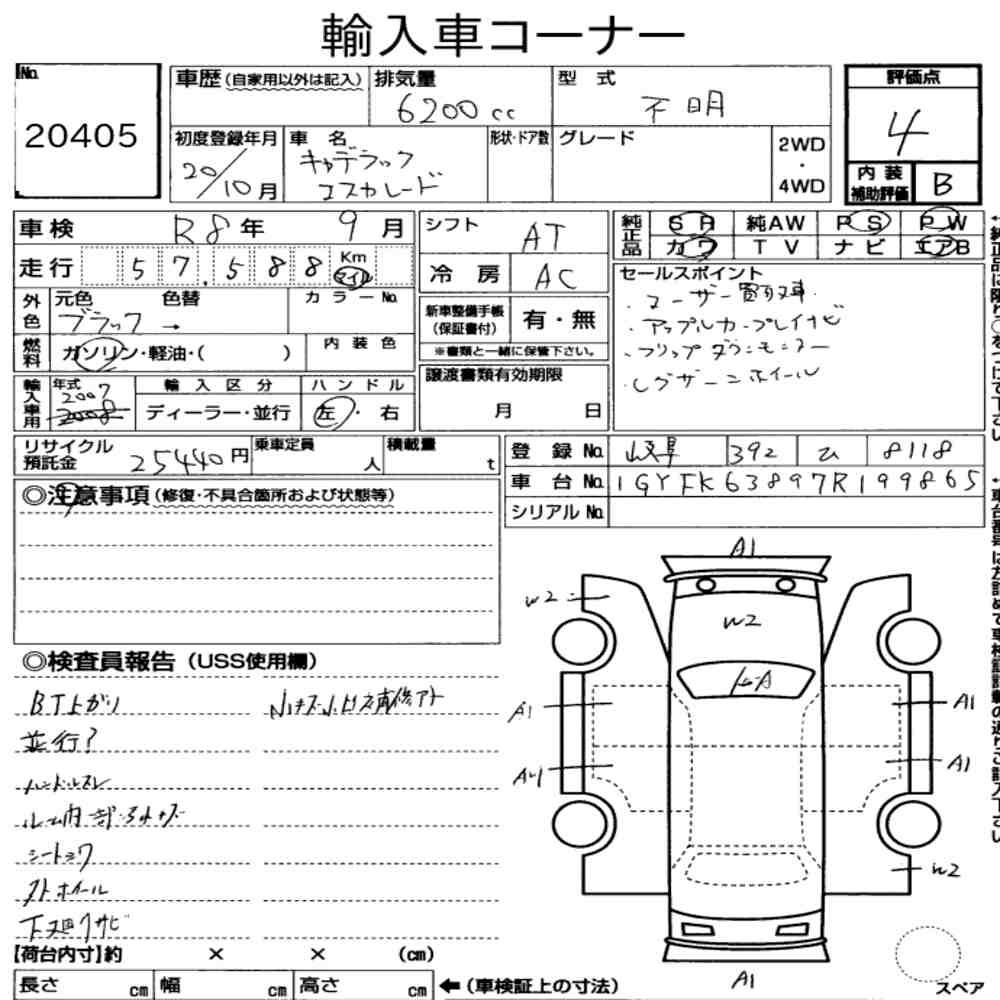 輸入車コーナー
No. 20405
車歴 (自家用以外は記入) 排気量 6200cc 型式 不明
評価点 4
内装補助評価 B
初度登録年月 20/10月 車名 キャデラック エスカレード 形状・ドア数 グレード 2WD・4WD
車検 R8年 9月
走行 57,588 Km マイル
外色 元色 ブラック → 色替 カラーNo.
燃料 ガソリン・軽油・( ) 内装色
輸入車用 年式 2007 2008 輸入区分 ディーラー・並行 ハンドル 左・右
シフト AT
冷房 AC
新車整備手帳 (保証書付) 有・無
※書類と一緒に保管下さい。
譲渡書類有効期限 月 日
純正品 SR 純AW PS PW
カワ TV ナビ エアB
セールスポイント
・ユーザー買取車
・アップルカープレイナビ
・フリップダウンモニター
・レグザーニホイール
リサイクル預託金 25440円 乗車定員 人 積載量 t
登録No. 岐阜 392 ひ 8118
車台No. 1GYFK63897R199865
シリアルNo.
◎注意事項 (修復・不具合箇所および状態等)
◎検査員報告 (USS使用欄)
BT上がり
並行?
ハンドルスレ
ルーム内一部キズ
シートシワ
アトホイール
下廻りサビ
A1
W2
W2
A1
A1
A1
A1
W2
A1
【荷台内寸】約 × × (cm)
長さ cm 幅 cm 高さ cm ←(車検証上の寸法)
スペア